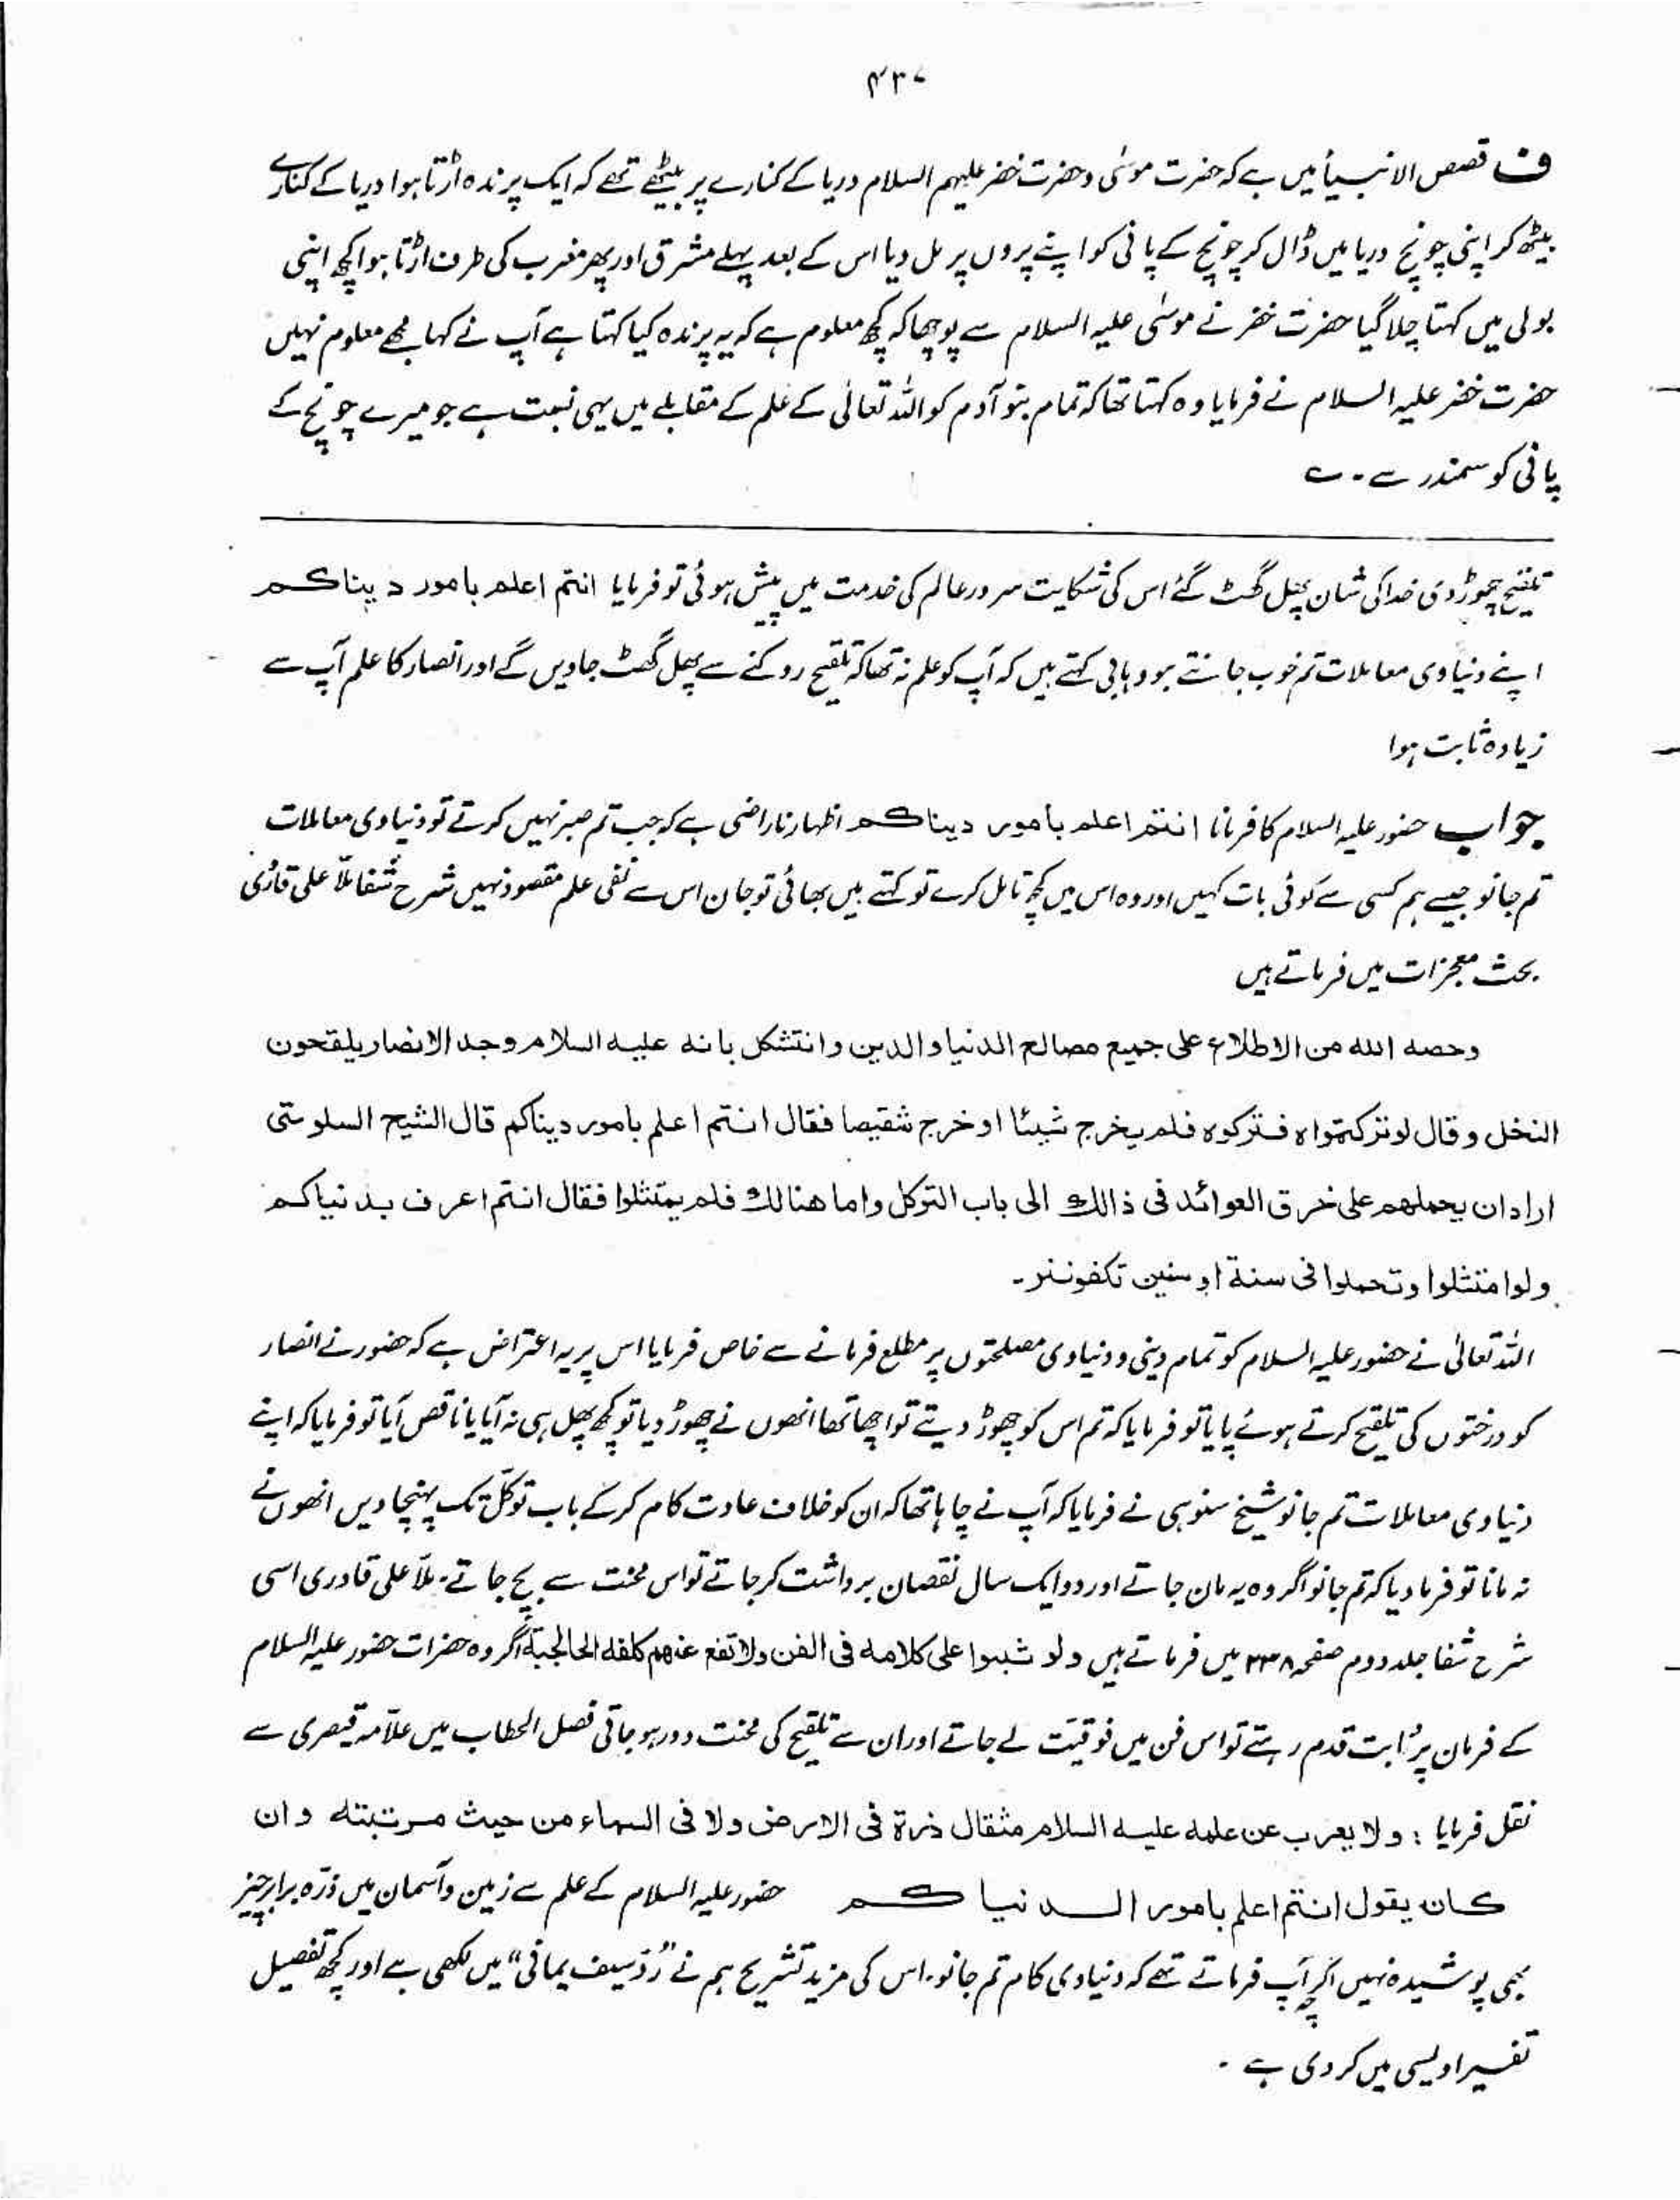 ۴۳۷
ف قصص الانبیأ میں ہے کہ حضرت موسٰی و حضرت خضر علیہم السلام دریا کے کنارے پر بیٹھے تھے کہ ایک پرندہ اڑتا ہوا دریا کے کنارے
بیٹھ کر اپنی چونچ دریا میں ڈال کر چونچ کے پانی کو اپنے پروں پر مل دیا اس کے بعد پہلے مشرق اور پھر مغرب کی طرف اڑتا ہوا کچھ اپنی
بولی میں کہتا چلا گیا حضرت خضر نے موسٰی علیہ السلام سے پوچھا کہ کچھ معلوم ہے کہ یہ پرندہ کیا کہتا ہے آپ نے کہا مجھے معلوم نہیں
حضرت خضر علیہ السلام نے فرمایا وہ کہتا تھا کہ تمام بنو آدم کو اللہ تعالٰی کے علم کے مقابلے میں یہی نسبت ہے جو میرے چونچ کے
پانی کو سمندر سے۔
تلقیح چھوڑ دی خدا کی شان پھل گھٹ گئے اس کی شکایت سرور عالم کی خدمت میں پیش ہوئی تو فرمایا انتم اعلم بامور دیناکم
اپنے دنیاوی معاملات تم خوب جانتے ہو وہابی کہتے ہیں کہ آپ کو علم نہ تھا کہ تلقیح روکنے سے پھل گھٹ جاویں گے اور انصار کا علم آپ سے
زیادہ ثابت ہوا
جواب حضور علیہ السلام کا فرمانا انتم اعلم بامور دیناکم اظہار ناراضی ہے کہ جب تم صبر نہیں کرتے تو دنیاوی معاملات
تم جانو جیسے ہم کسی سے کوئی بات کہیں اور وہ اس میں کچھ تامل کرے تو کہتے ہیں بھائی تو جان اس سے نفی علم مقصود نہیں شرح شفا ملّا علی قاری
بحث معجزات میں فرماتے ہیں
وحصه الله من الاطلاع على جميع مصالح الدنيا والدين وانتشكل بانه عليه السلام وجد الانصار يلقحون
النخل وقال لوتركتمواه فتركوه فلم يخرج شيئا اوخرج شقيصا فقال انتم اعلم بامور ديناكم قال الشيح السلوستى
ارادان يحملهم على خرق العوائد فى ذالك الى باب التوكل واما هنالك فلم يمتثلوا فقال انتم اعرف بدنياكم
ولوامتثلوا وتحملوا فى سنة اوسنين
اللہ تعالٰی نے حضور علیہ السلام کو تمام دینی و دنیاوی مصلحتوں پر مطلع فرمانے سے خاص فرمایا اس پر یہ اعتراض ہے کہ حضور نے انصار
کو درختوں کی تلقیح کرتے ہوئے پایا تو فرمایا کہ تم اس کو چھوڑ دیتے تو اچھا تھا انھوں نے چھوڑ دیا تو کچھ پھل ہی نہ آیا یا ناقص آیا تو فرمایا کہ اپنے
دنیاوی معاملات تم جانو شیخ سنوسی نے فرمایا کہ آپ نے چاہا تھا کہ ان کو خلاف عادت کام کر کے باب توکّل تک پہنچا دیں انھوں نے
نہ مانا تو فرما دیا کہ تم جانو اگر وہ یہ مان جاتے اور دو ایک سال نقصان برداشت کر جاتے تو اس محنت سے بچ جاتے۔ ملّا علی قادری اسی
شرح شفا جلد دوم صفحہ ۲۳۸ میں فرماتے ہیں ولو شبوا على كلامه فى الفن ولاتفع عنهم كلفه اگر وہ حضرات حضور علیہ السلام
کے فرمان پر ثابت قدم رہتے تو اس فن میں فوقیت لے جاتے اور ان سے تلقیح کی محنت دور ہو جاتی فصل الحطاب میں علامہ قیصری سے
نقل فرمایا : ولا يعرب عن علمه عليه السلام مثقال ذرة فى الارض ولا فى السماء من حيث مرتبته وان
كان يقول انتم اعلم بامور الدنياكم حضور علیہ السلام کے علم سے زمین و آسمان میں ذرّہ برابر چیز
بھی پوشیدہ نہیں اگرچہ آپ فرماتے تھے کہ دنیاوی کام تم جانو۔ اس کی مزید تشریح ہم نے "رُدّ سیف یمانی" میں لکھی ہے اور کچھ تفصیل
تفسیر اویسی میں کر دی ہے۔